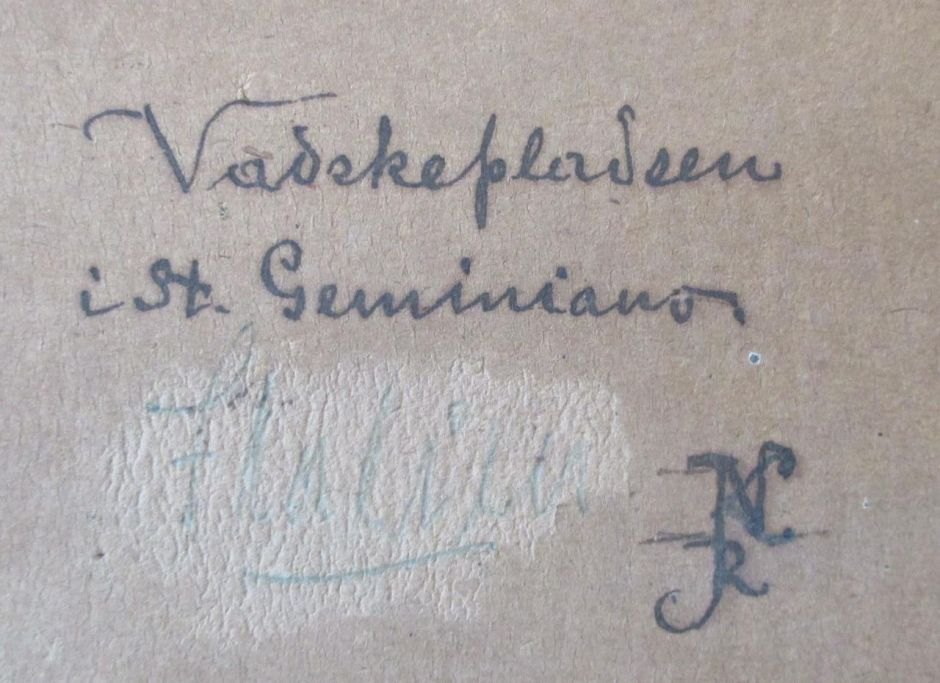 Vadskepladsen
i St. Geminiano.
Italien